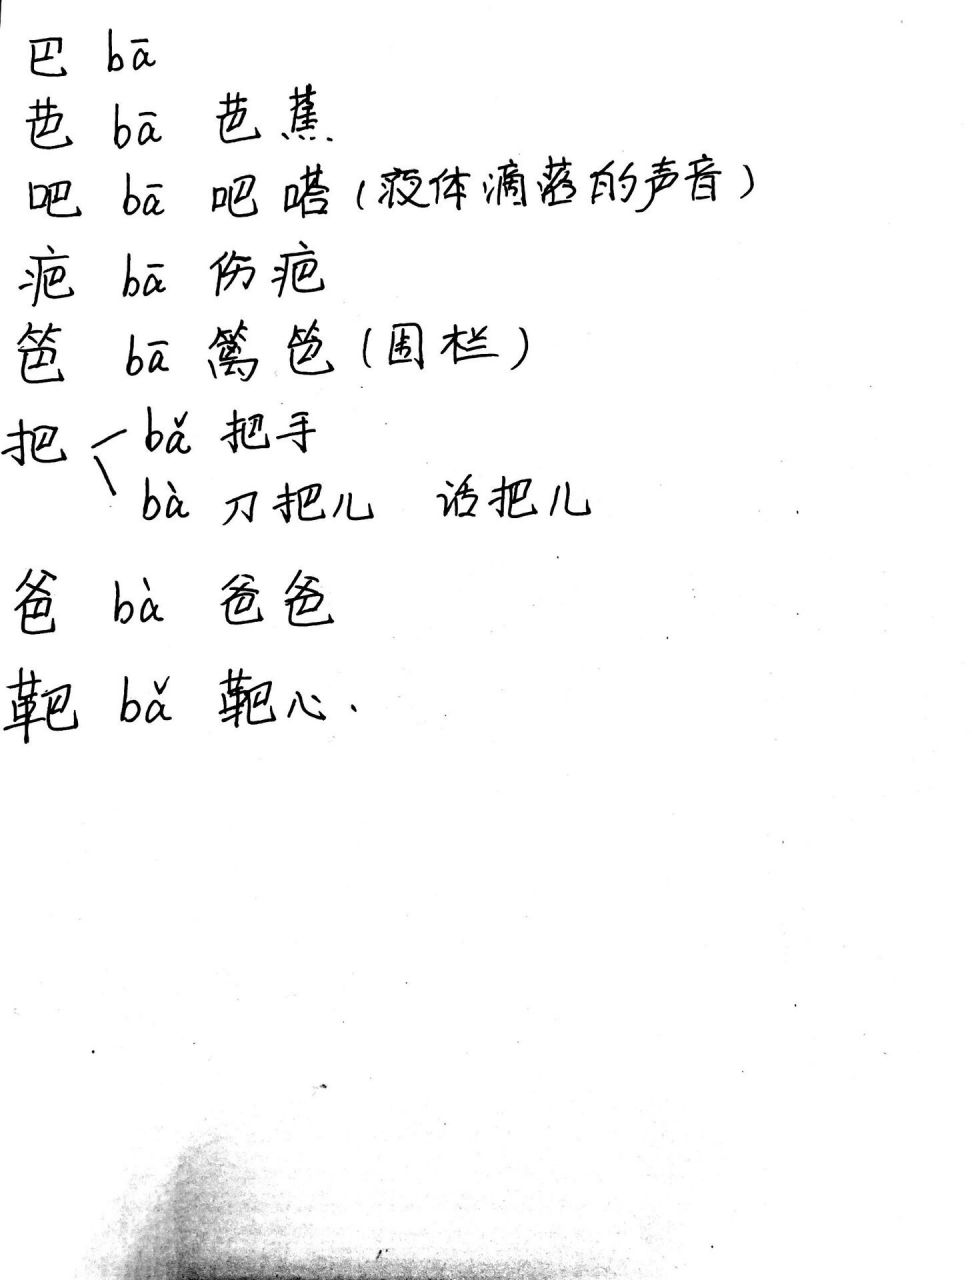 巴 bā
芭 bā 芭蕉
吧 bā 吧嗒(液体滴落的声音)
疤 bā 伤疤
笆 bā 篱笆(围栏)
把 bǎ 把手
bà 刀把儿 话把儿
爸 bà 爸爸
靶 bǎ 靶心.